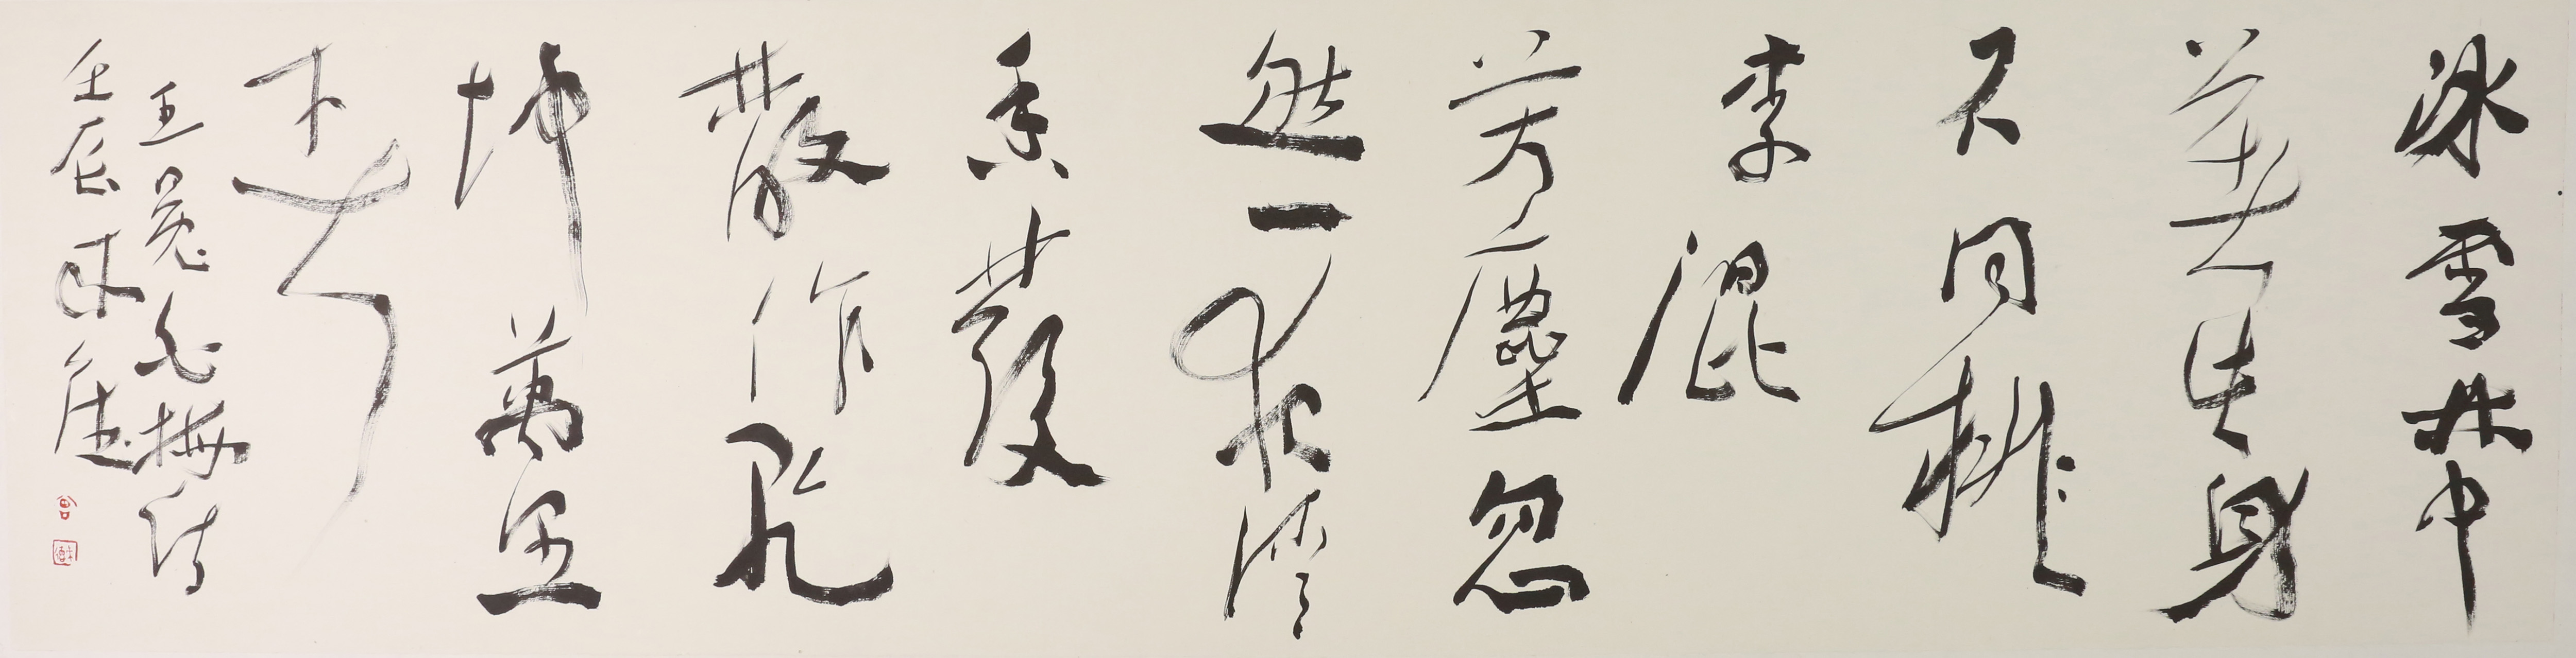 冰雪林中
著此身
不同桃
李混
芳塵忽
然一夜清
香發
散作乾
坤萬里
春
王冕白梅詩
壬辰